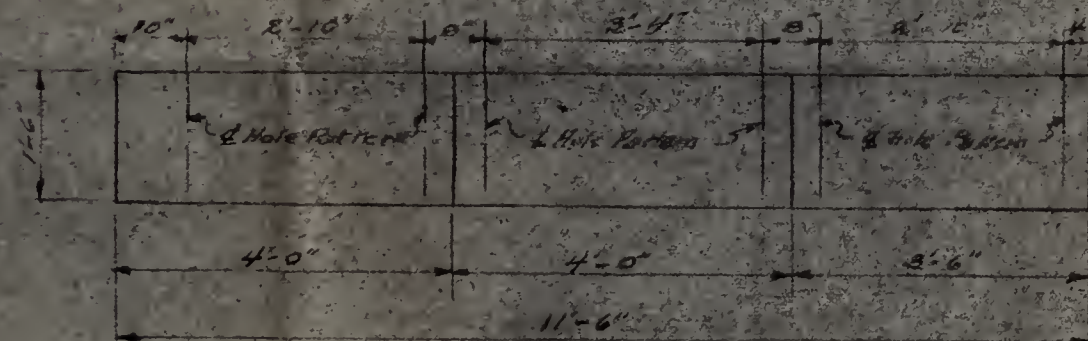 10" 2'-10" 8" 3'-4" 8" 2'-10"
1'-6"
℄ Hole Pattern ℄ Hole Pattern ℄ Hole Pattern
4'-0" 4'-0" 3'-6"
11'-6"